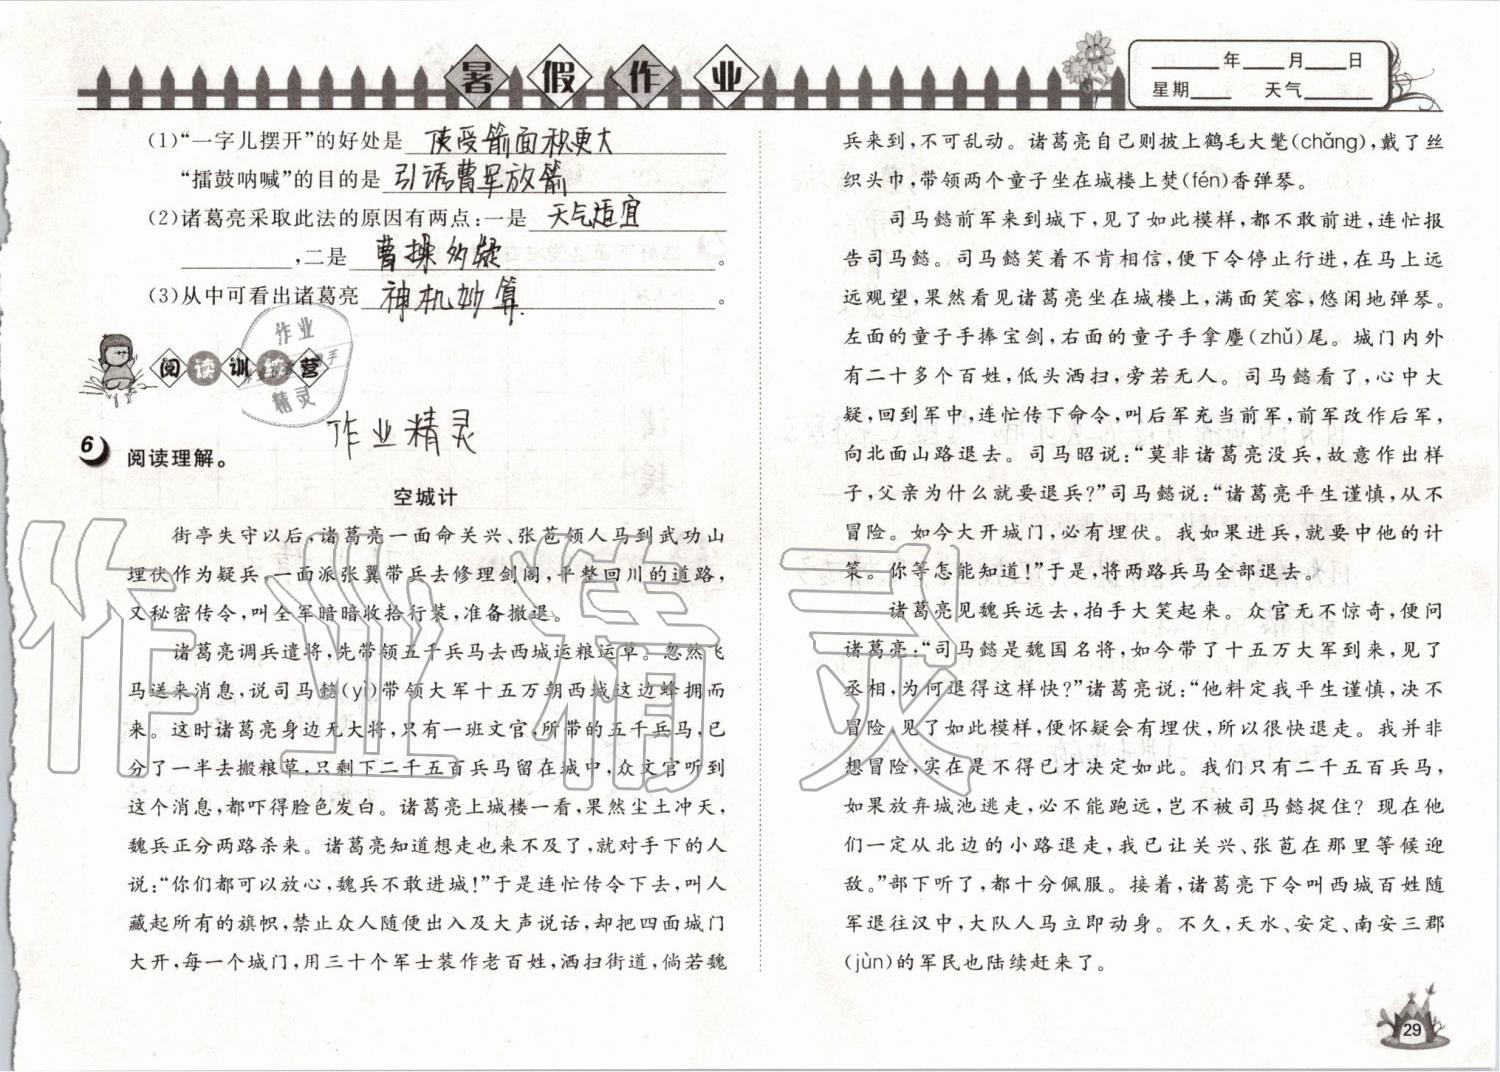 暑假作业
____年____月____日
星期____ 天气____
(1)“一字儿摆开”的好处是 使受箭面积更大
“擂鼓呐喊”的目的是 引诱曹军放箭
(2)诸葛亮采取此法的原因有两点:一是 天气适宜
,二是 曹操多疑 。
(3)从中可看出诸葛亮 神机妙算 。
作业
精灵
阅读训练营
作业精灵
6 阅读理解。
空城计
街亭失守以后,诸葛亮一面命关兴、张苞领人马到武功山
埋伏作为疑兵,一面派张翼带兵去修理剑阁,平整回川的道路,
又秘密传令,叫全军暗暗收拾行装,准备撤退。
诸葛亮调兵遣将,先带领五千兵马去西城运粮运草。忽然飞
马送来消息,说司马懿(yì)带领大军十五万朝西城这边蜂拥而
来。这时诸葛亮身边无大将,只有一班文官,所带的五千兵马,已
分了一半去搬粮草,只剩下二千五百兵马留在城中,众文官听到
这个消息,都吓得脸色发白。诸葛亮上城楼一看,果然尘土冲天,
魏兵正分两路杀来。诸葛亮知道想走也来不及了,就对手下的人
说:“你们都可以放心,魏兵不敢进城!”于是连忙传令下去,叫人
藏起所有的旗帜,禁止众人随便出入及大声说话,却把四面城门
大开,每一个城门,用三十个军士装作老百姓,洒扫街道,倘若魏
兵来到,不可乱动。诸葛亮自己则披上鹤毛大氅(chǎng),戴了丝
织头巾,带领两个童子坐在城楼上焚(fén)香弹琴。
司马懿前军来到城下,见了如此模样,都不敢前进,连忙报
告司马懿。司马懿笑着不肯相信,便下令停止行进,在马上远
远观望,果然看见诸葛亮坐在城楼上,满面笑容,悠闲地弹琴。
左面的童子手捧宝剑,右面的童子手拿麈(zhǔ)尾。城门内外
有二十多个百姓,低头洒扫,旁若无人。司马懿看了,心中大
疑,回到军中,连忙传下命令,叫后军充当前军,前军改作后军,
向北面山路退去。司马昭说:“莫非诸葛亮没兵,故意作出样
子,父亲为什么就要退兵?”司马懿说:“诸葛亮平生谨慎,从不
冒险。如今大开城门,必有埋伏。我如果进兵,就要中他的计
策。你等怎能知道!”于是,将两路兵马全部退去。
诸葛亮见魏兵远去,拍手大笑起来。众官无不惊奇,便问
诸葛亮:“司马懿是魏国名将,如今带了十五万大军到来,见了
丞相,为何退得这样快?”诸葛亮说:“他料定我平生谨慎,决不
冒险,见了如此模样,便怀疑会有埋伏,所以很快退走。我并非
想冒险,实在是不得已才决定如此。我们只有二千五百兵马,
如果放弃城池逃走,必不能跑远,岂不被司马懿捉住?现在他
们一定从北边的小路退走,我已让关兴、张苞在那里等候迎
敌。”部下听了,都十分佩服。接着,诸葛亮下令叫西城百姓随
军退往汉中,大队人马立即动身。不久,天水、安定、南安三郡
(jùn)的军民也陆续赶来了。
作业精灵
29